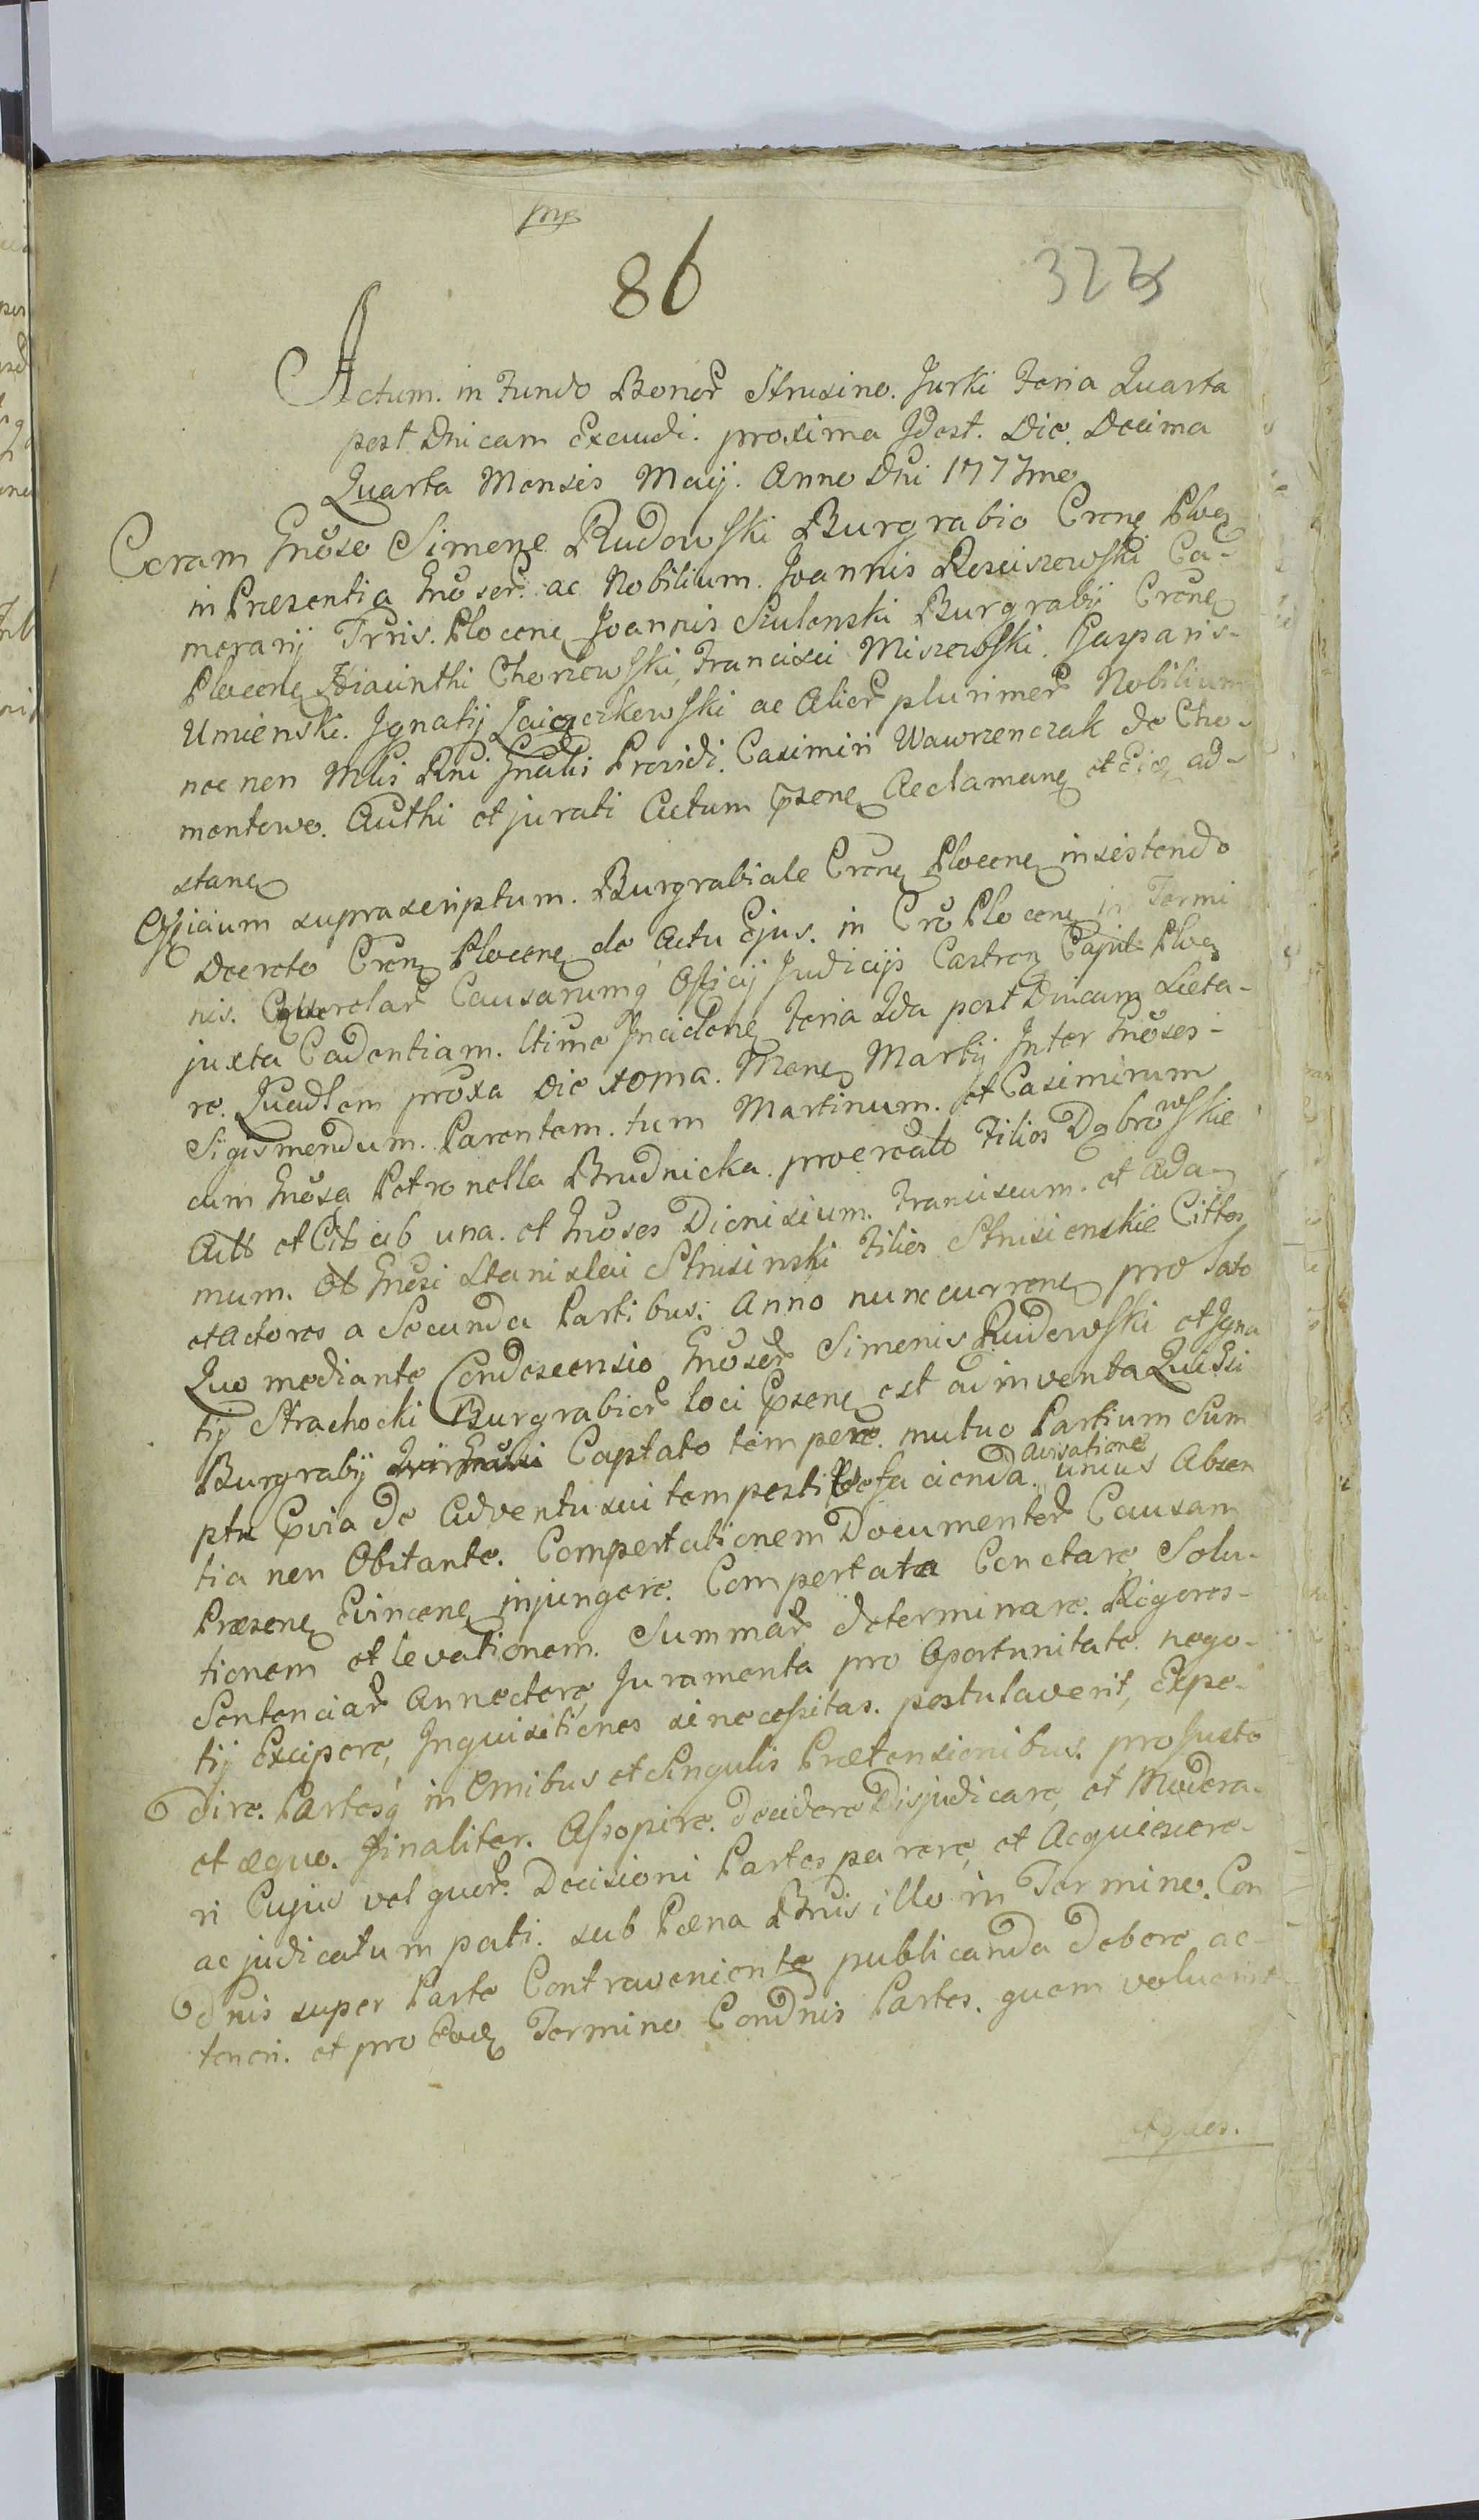 mp
86
322
Actum in Fundo Bonor Strusino Jurki Feria Quarta
post Dnicam Exaudi proxima Idest Die Decima
Quarta Mensis Maij Anno Dni 1777mo
Coram Gnoso Simone Rudowski Burgrabio Crnē Ploc
in Præsentia Gnosor ac Nobilium Joannis Rosciszewski Ca-
merarij Trris Plocen Joannis Szulenski Burgrabij Crenē
Plocenē Hiacinthi Chorzewski, Francisci Miszewski, Gasparis
Umienski Ignatij ac Alior plurimor Nobilium
nec non Mlis Rni Gnalis Providi Casimiri Wawrzenczak de Cho-
mentowo Authi et jurati Actum præsene Acclamane et Eid ad-
stane
Officium suprascriptum Burgrabiale Crenē Plocenē insistendo
Decreto Crenē Plocenē de Actu Ejus in Cro Plocenē in Termi
nis Querelar Causarumq Officij Judicijs Castren Capit Ploc
juxta Cadentiam ltime Incidenē Feria 2da post Dnicam Læta-
re Quadlem proxa Die xma Mens Martij Inter Gnosos
Sigismundum Parentem tum Martinum et Casimirum
cum Gnosa Petronella Brudnicka procreato Filios Dąbrowskie
Actt et Citt ab una et Gnosos Dionisium Franciscum et Ada-
mum Gnosi Stanislai Strusinski Filios Strusienskie Cittos
et Actores a Secunda Partibus Anno nunc currenē pro lato
Quo mediante Condescensio Gnosor Simonis Rudowski et Igna
tij Strachocki Burgrabior loci præsenē est adinventa Quidsi
Burgrabij Captato tempore mutuo Partium Sum
ptu prvia de Adventu sui tempestive facienda Avisatione unius Absen
tia non Obstante Comportationem Documentor Causam
Præsenē Evincenē injungere Comportata Conotare, Solu-
tionem et levationem Summar determinare Rigoros-
Sentenciar Annectere, Juramenta pro Oportunitate nego-
tij Excipere, Inquisitiones si necessitas postulaverit, Expe-
dire Partesq in Omnibus et Singulis Prætensionibus pro Justo
et æquo finaliter Assopire Decidere Disjudicare, et Modera-
ri Cujus vel quor Decisioni Partes parere, et Acquiescere
ac judicatum pati sub Pæna Bnis illo in Termino Con
dnis super Parte Contraveniente publicanda debere ac
teneri et pro Eod Termino Condnis Partes quem
et quos.